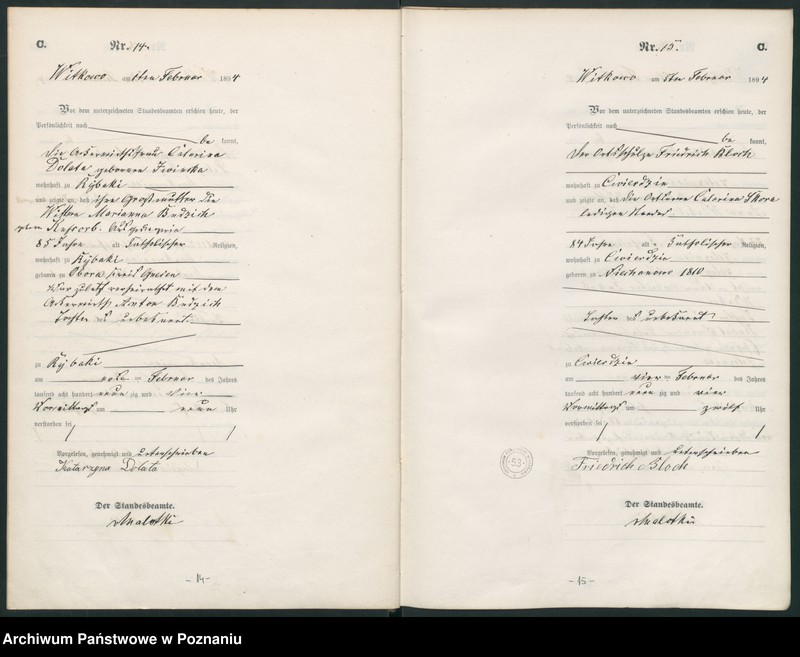 C.
Nr. 14.
Witkowo am 6ten Februar 1894
Vor dem unterzeichneten Standesbeamten erschien heute, der
Persönlichkeit nach
be kannt,
die Catarina
Dolata geborene
wohnhaft zu Rybaki
und zeigte an, daß ihre Großmutter die
Wittwe Marianna
85 Jahre alt katholischer Religion,
wohnhaft zu Rybaki
geboren zu Obora Kreis Gnesen
war zuletzt verheirathet mit dem
Ackerwirth Anton
Tochter des unbekannt.
zu Rybaki
am Februar des Jahres
tausend acht hundert neun zig und vier
Vormittags um neun Uhr
verstorben sei
Vorgelesen, genehmigt und unterschrieben
Katarzyna Dolata
Der Standesbeamte.
Malotki
- 14 -
Nr. 15. C.
Witkowo am 5ten Februar 1894
Vor dem unterzeichneten Standesbeamten erschien heute, der
Persönlichkeit nach
be kannt,
der Ortsschulze Friedrich Bloch
wohnhaft zu Cwierdzin
und zeigte an, daß die Ortsarme Catarina Skora
ledigen Standes
84 Jahre alt katholischer Religion,
wohnhaft zu Cwierdzin
geboren zu 1810
Tochter des unbekannt
zu Cwierdzin
am vier Februar des Jahres
tausend acht hundert neun zig und vier
Vormittags um zwölf Uhr
verstorben sei
Vorgelesen, genehmigt und unterschrieben
Friedrich Bloch
Der Standesbeamte.
Malotki
53
- 15 -
Archiwum Państwowe w Poznaniu